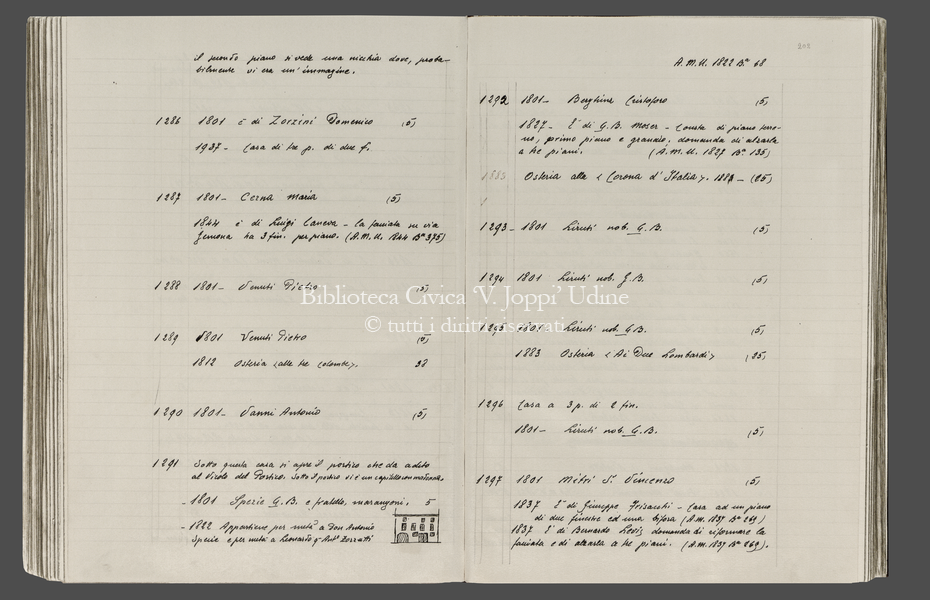 il secondo piano si vede una nicchia dove, proba-
bilmente vi era un'immagine.
1286 1801 è di Zorzini Domenico (5)
1937- Casa di tre p. di due f.
1287 1801- Cerna Maria (5)
1844 è di Luigi Caneva - la facciata su via
Gemona ha 3 fin. per piano. (A.M.U. 1844 Bª 375)
1288 1801- Venuti Pietro (5)
1289 1801 Venuti Pietro (5)
1812 Osteria <alle tre colombe>. 38
1290 1801- Vanni Antonio (5)
1291 Sotto questa casa si apre il portico che da adito
al Vicolo del Portico. Sotto il portico vi è un capitello con
- 1801 Sperie G.B. e fratello, marangoni. 5
- 1822 Appartiene per metà a Don Antonio
Sperie e per metà a Leonardo q. Antº Zorzutti
212
A.M.U. 1822 Bª 68
1292 1801- Berghinz Cristoforo (5)
1827- E' di G.B. Moser - Consta di piano terre-
no, primo piano e granaio; domanda di alzarla
a tre piani. (A.M.U. 1827 Bª 135)
1883 Osteria alla <Corona d'Italia>. 1883 - (25)
1293- 1801 Liruti nob. G.B. (5)
1294 1801 Liruti nob. G.B. (5)
1295 1801 Liruti nob. G.B. (5)
1883 Osteria <Ai Due Lombardi> (25)
1296 Casa a 3 p. di 2 fin.
1801- Liruti nob. G.B. (5)
1297 1801 Mitri Sr. Vincenzo (5)
1837 E' di Giuseppe Frisacchi - Casa ad un piano
di due finestre ed una bifora (A.M. 1837 Bª 269)
1837 E' di Bernardo Levis domanda di riformare la
facciata e di alzarla a tre piani. (A.M. 1837 Bª 269).
Biblioteca Civica 'V. Joppi' Udine
© tutti i diritti riservati